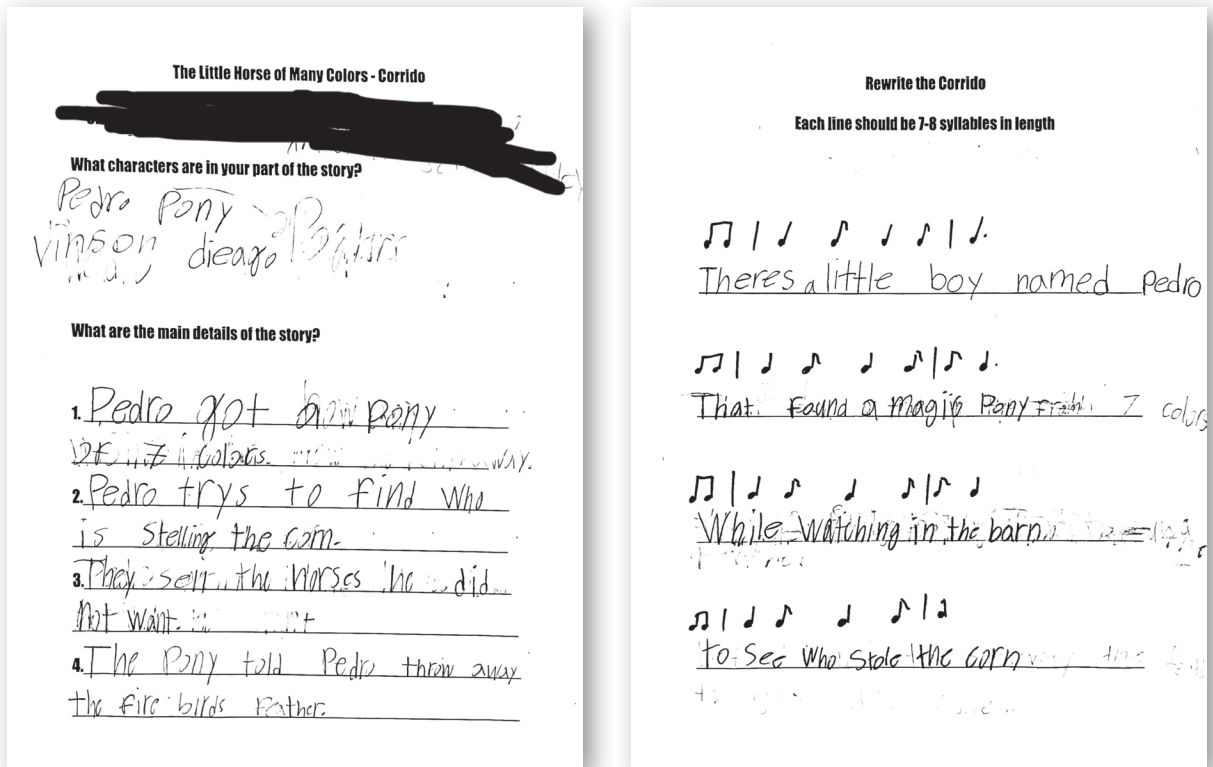 The Little Horse of Many Colors - Corrido
What characters are in your part of the story?
Pedro Pony
Vinson dieago
What are the main details of the story?
1. Pedro got pony
OF 7 colors. way.
2. Pedro trys to find who
is stelling the corn.
3. They sell the horses he did
not want.
4. The Pony told Pedro throw away
the fire birds Feather.
Rewrite the Corrido
Each line should be 7-8 syllables in length
Theres a little boy named Pedro
That Found a magic Pony 7 colors
While watching in the barn
to see who stole the corn